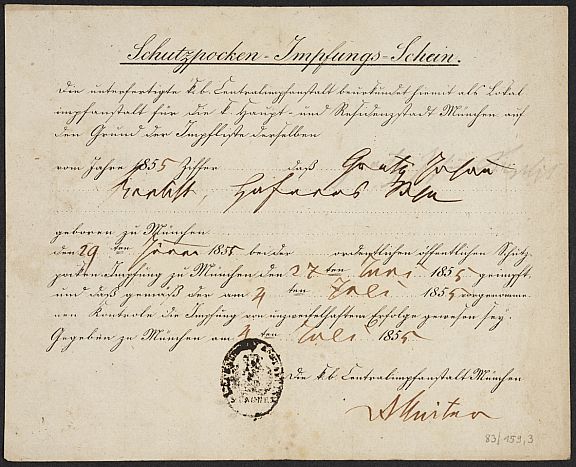 Schutzpocken-Impfungs-Schein.
Die unterfertigte k. b. Centralimpfanstalt beurkundet hiemit als Lokal
impfanstalt für die k. Haupt- und Residenzstadt München auf
den Grund der Impfliste derselben
vom Jahre 1855 Ziffer daß Johann
Hafners Sohn
geboren zu München
den 29ten 1855 bei der ordentlichen öffentlichen Schutz
pocken-Impfung zu München den 27ten Juni 1855 geimpft,
und daß gemäß der am 4ten Juli 1855 vorgenomme
nen Kontrole die Impfung von unzweifelhaftem Erfolge gewesen sey.
Gegeben zu München am 4ten Juli 1855
Die k. b. Centralimpfanstalt München
83/159,3